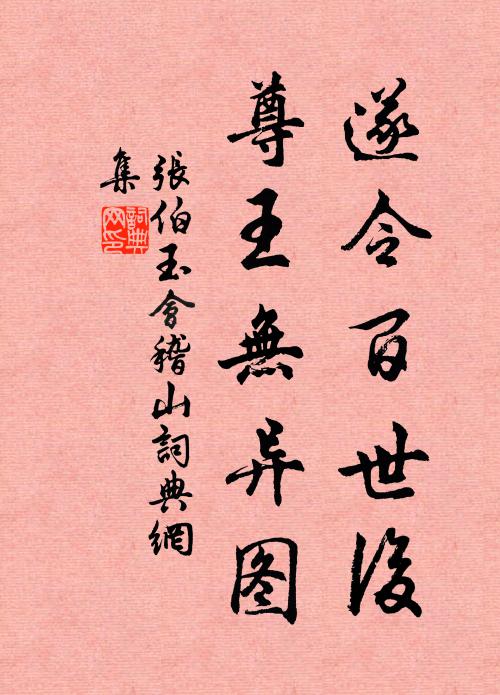 遂令百世後
尊王無异图
張伯玉會稽山詞典網
集
詞典网印